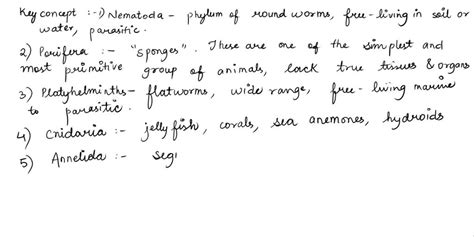 Key concept :- 1) Nematoda - phylum of round worms, free-living in soil or
water, parasitic.
2) Porifera :- "sponges". These are one of the simplest and
most primitive group of animals, lack true tissues & organs
3) Platyhelminths - flatworms, wide range, free-living marine
to parasitic.
4) Cnidaria :- jelly fish, corals, sea anemones, hydroids
5) Annelida :- seg